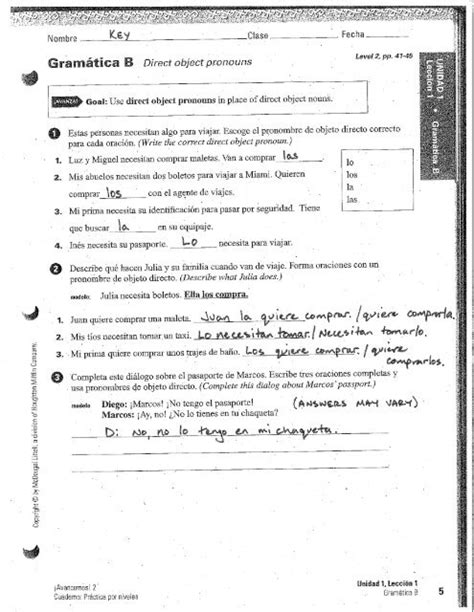 Nombre Key Clase Fecha
Gramática B Direct object pronouns
Level 2, pp. 41-45
UNIDAD 1
Lección 1
Gramática B
¡AVANZA! Goal: Use direct object pronouns in place of direct object nouns.
1 Estas personas necesitan algo para viajar. Escoge el pronombre de objeto directo correcto
para cada oración. (Write the correct direct object pronoun.)
1. Luz y Miguel necesitan comprar maletas. Van a comprar las
2. Mis abuelos necesitan dos boletos para viajar a Miami. Quieren
comprar los con el agente de viajes.
3. Mi prima necesita su identificación para pasar por seguridad. Tiene
que buscar la en su equipaje.
4. Inés necesita su pasaporte. Lo necesita para viajar.
lo
los
la
las
2 Describe qué hacen Julia y su familia cuando van de viaje. Forma oraciones con un
pronombre de objeto directo. (Describe what Julia does.)
modelo: Julia necesita boletos. Ella los compra.
1. Juan quiere comprar una maleta. Juan la quiere comprar. / quiere comprarla.
2. Mis tíos necesitan tomar un taxi. Lo necesitan tomar. / Necesitan tomarlo.
3. Mi prima quiere comprar unos trajes de baño. Los quiere comprar. / quiere
comprarlos.
3 Completa este diálogo sobre el pasaporte de Marcos. Escribe tres oraciones completas y
usa pronombres de objeto directo. (Complete this dialog about Marcos' passport.)
modelo Diego: ¡Marcos! ¡No tengo el pasaporte! (ANSWERS MAY VARY)
Marcos: ¡Ay, no! ¿No lo tienes en tu chaqueta?
D: No, no lo tengo en mi chaqueta.
Copyright © by McDougal Littell, a division of Houghton Mifflin Company.
¡Avancemos! 2
Cuaderno: Práctica por niveles
Unidad 1, Lección 1
Gramática B
5